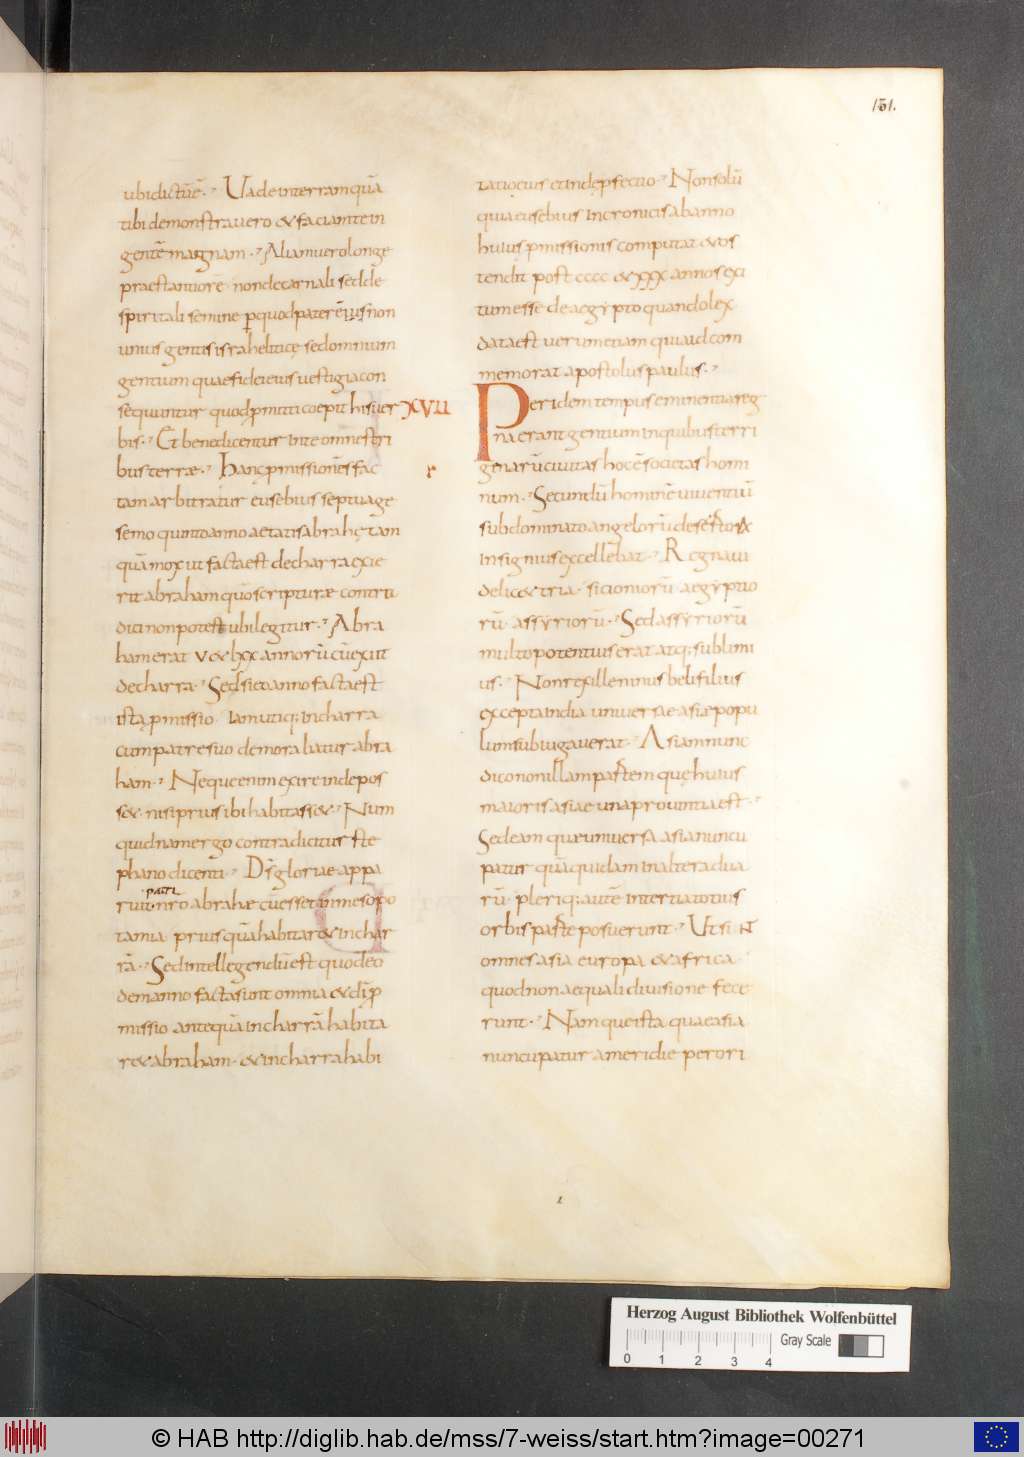 131.
ubi dictū ē. Uade in terram quā
tibi demonstravero & faciam te in
gentē magnam. Aliam vero longe
praestantiorē non de carnali sed de
spiritali semine ꝑ quod pater ē ejus non
unius gentis israheliticę sed omnium
gentium quae fidei eius vestigia con
sequuntur quod ꝓmitti coepit his ver
bis. Et benedicentur in te omnes tri
bus terrae. Hanc ꝓmissionē fac
tam arbitratur eusebius septuage
semo quinto anno aetatis abrahę tam
quā mox ut facta est de charra exie
rit abraham quō scripturae contra
dici non potest ubi legitur. Abra
ham erat v & lxx annorū cū exiit
de charra. Sed si eo anno facta est
ista ꝓmissio iam utiq; in charra
cum patre suo demorabatur abra
ham. Neque enim exire inde pos
s& nisi prius ibi habitass&. Num
quidnam ergo contradicitur ste
phano dicenti. Ds̄ gloriae appa
patri
ruit nrō abrahae cū esset in mesopo
tamia priusquā habitar& in char
rā. Sed intellegendū est quod eo
dem anno facta sunt omnia & dī ꝓ
missio antequā in charrā habita
r& abraham. & in charra habi
tatio eius et inde ꝓfectio. Non solū
quia eusebius in cronicis ab anno
huius ꝓmissionis computat & os
tendit post cccc & xxx annos exi
tum esse de aegypto quando lex
data est verum etiam quia id com
memorat apostolus paulus.
XVII
Per idem tempus eminentia reg
na erant gentium in quibus terri
genarū civitas hoc ē societas homi
num. Secundū hominē viventiū
sub dominato angelorū desertorū
insignius excellebat. Regna vi
delic& tria sicioniorū aegyptio
rū assyriorū. Sed assyriorū
multo potentius erat atq; sublimi
us. Non rex ille ninus beli filius
excepta india universae asiae popu
lum subiugaverat. Asiam nunc
dico non illam partem quę huius
maioris asiae una provintia est.
Sed eam quae universa asia nuncu
patur quā quidam in altera dua
rū pleriq; autē in tertia totius
orbis parte posuerunt. Ut sint
omnes asia europa & africa
quod non aequali divisione fece
runt. Namque ista quae asia
nuncupatur a meridie per ori
Herzog August Bibliothek Wolfenbüttel
Gray Scale
0 1 2 3 4
© HAB http://diglib.hab.de/mss/7-weiss/start.htm?image=00271